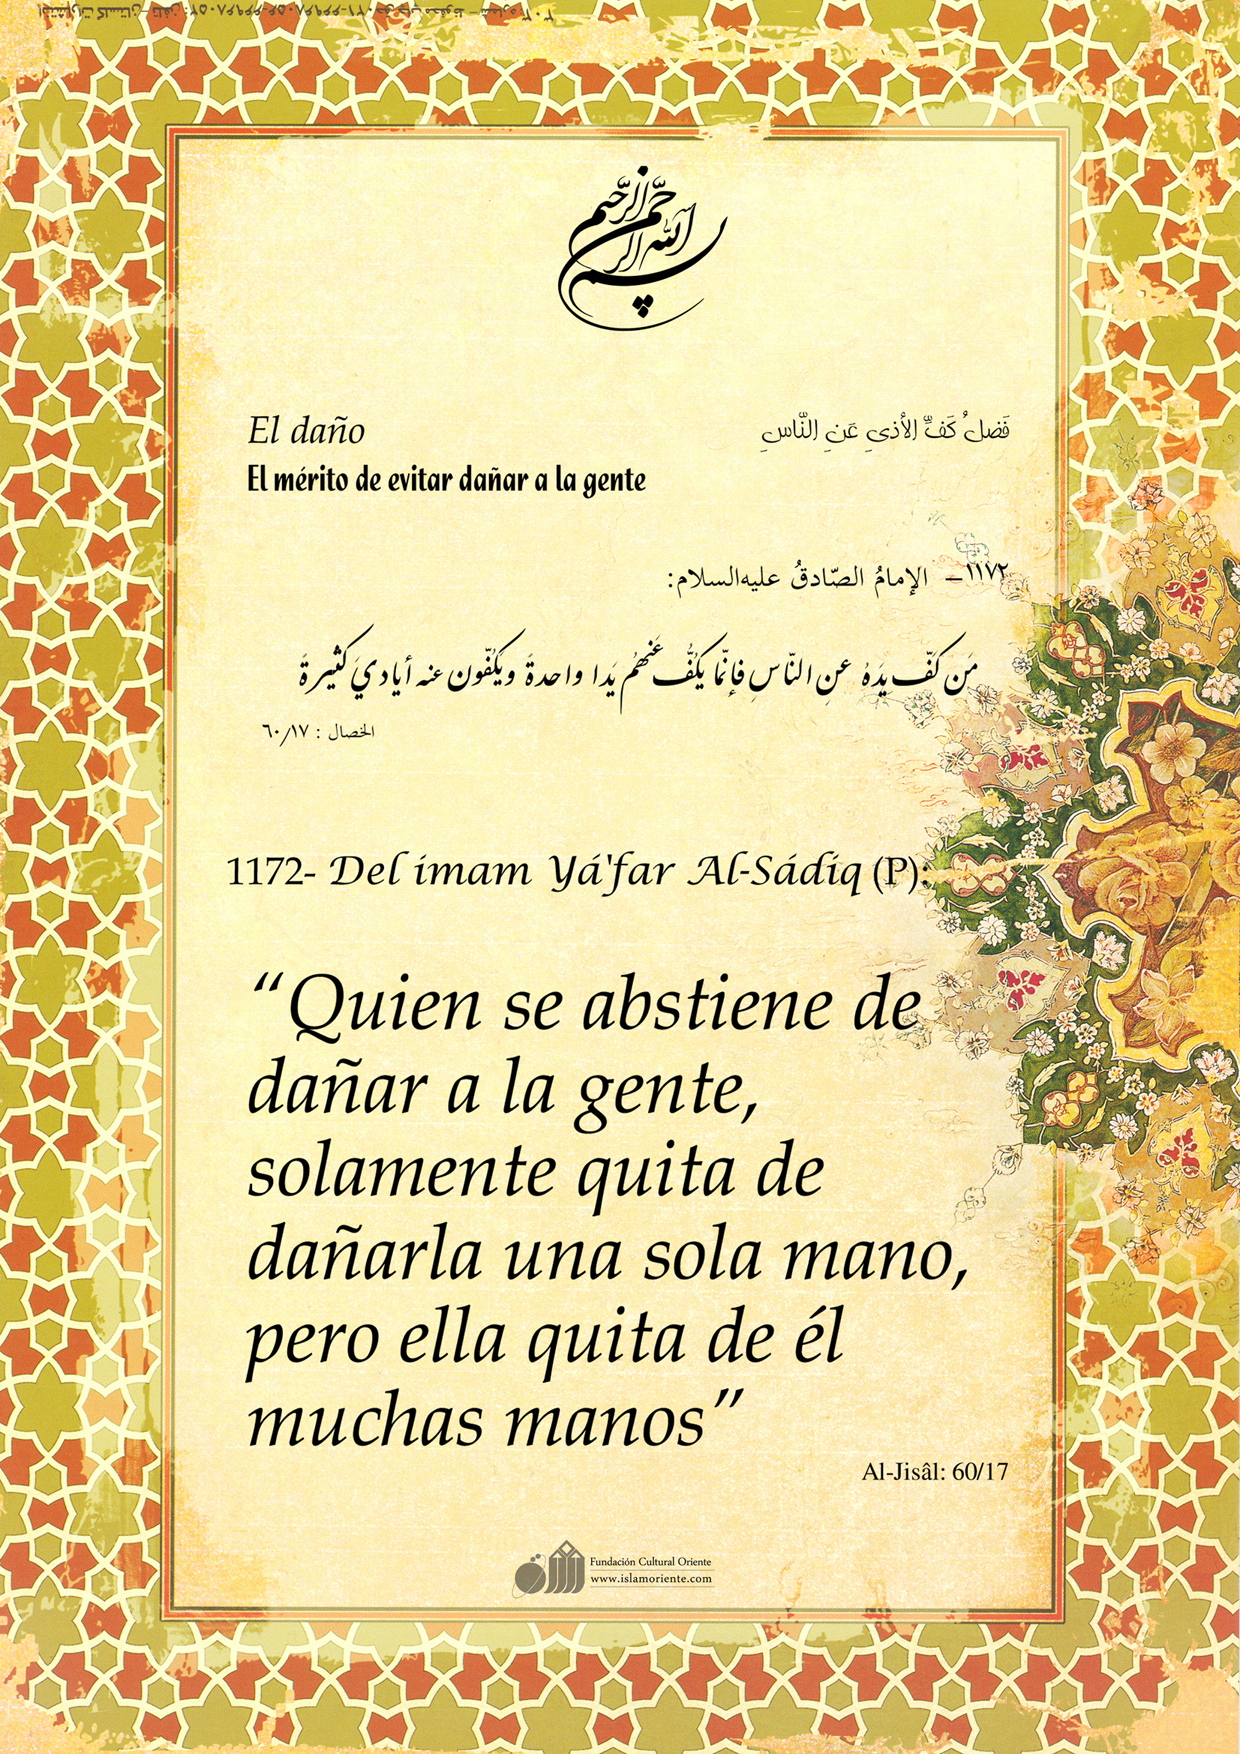 بسم الله الرحمن الرحيم
El daño
فَضلُ كَفِّ الأذىٰ عَنِ النّاسِ
El mérito de evitar dañar a la gente
١١٧٢– الإمامُ الصّادقُ عليه‌السلام:
مَن كَفَّ يَدَهُ عنِ النّاسِ فإنّما يَكُفُّ عَنهُم يَدا واحدةً ويَكُفّونَ عنه أياديَ كثيرةً
الخصال : ٦٠/١٧
1172- Del imam Yá'far Al-Sádiq (P):
“Quien se abstiene de
dañar a la gente,
solamente quita de
dañarla una sola mano,
pero ella quita de él
muchas manos”
Al-Jisâl: 60/17
Fundación Cultural Oriente
www.islamoriente.com